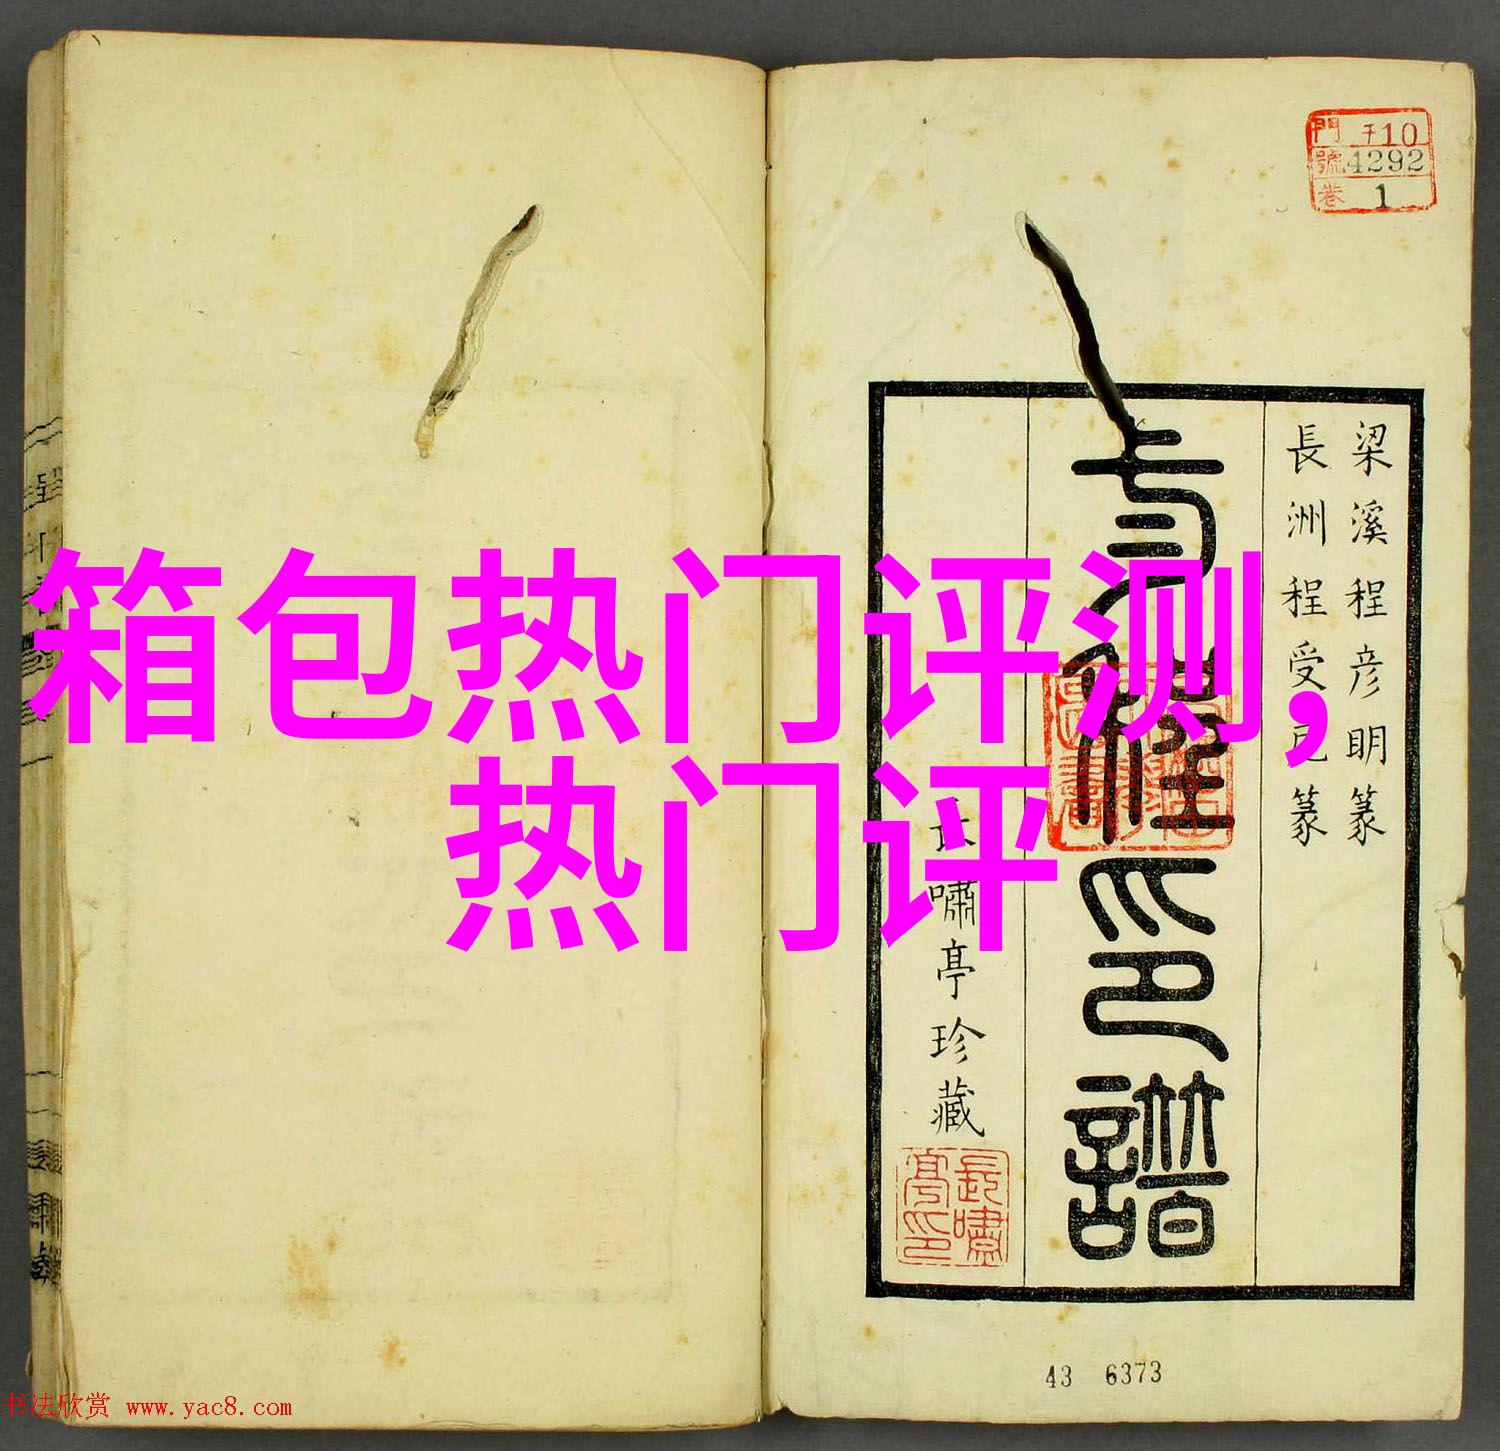 箱包热门评测,
热门评
門 千10
號 4292
卷 1
梁溪程彦明篆
長洲程受尼篆
印譜
嘯亭珍藏
長嘯亭印
43 6373
书法欣赏 www.yac8.com